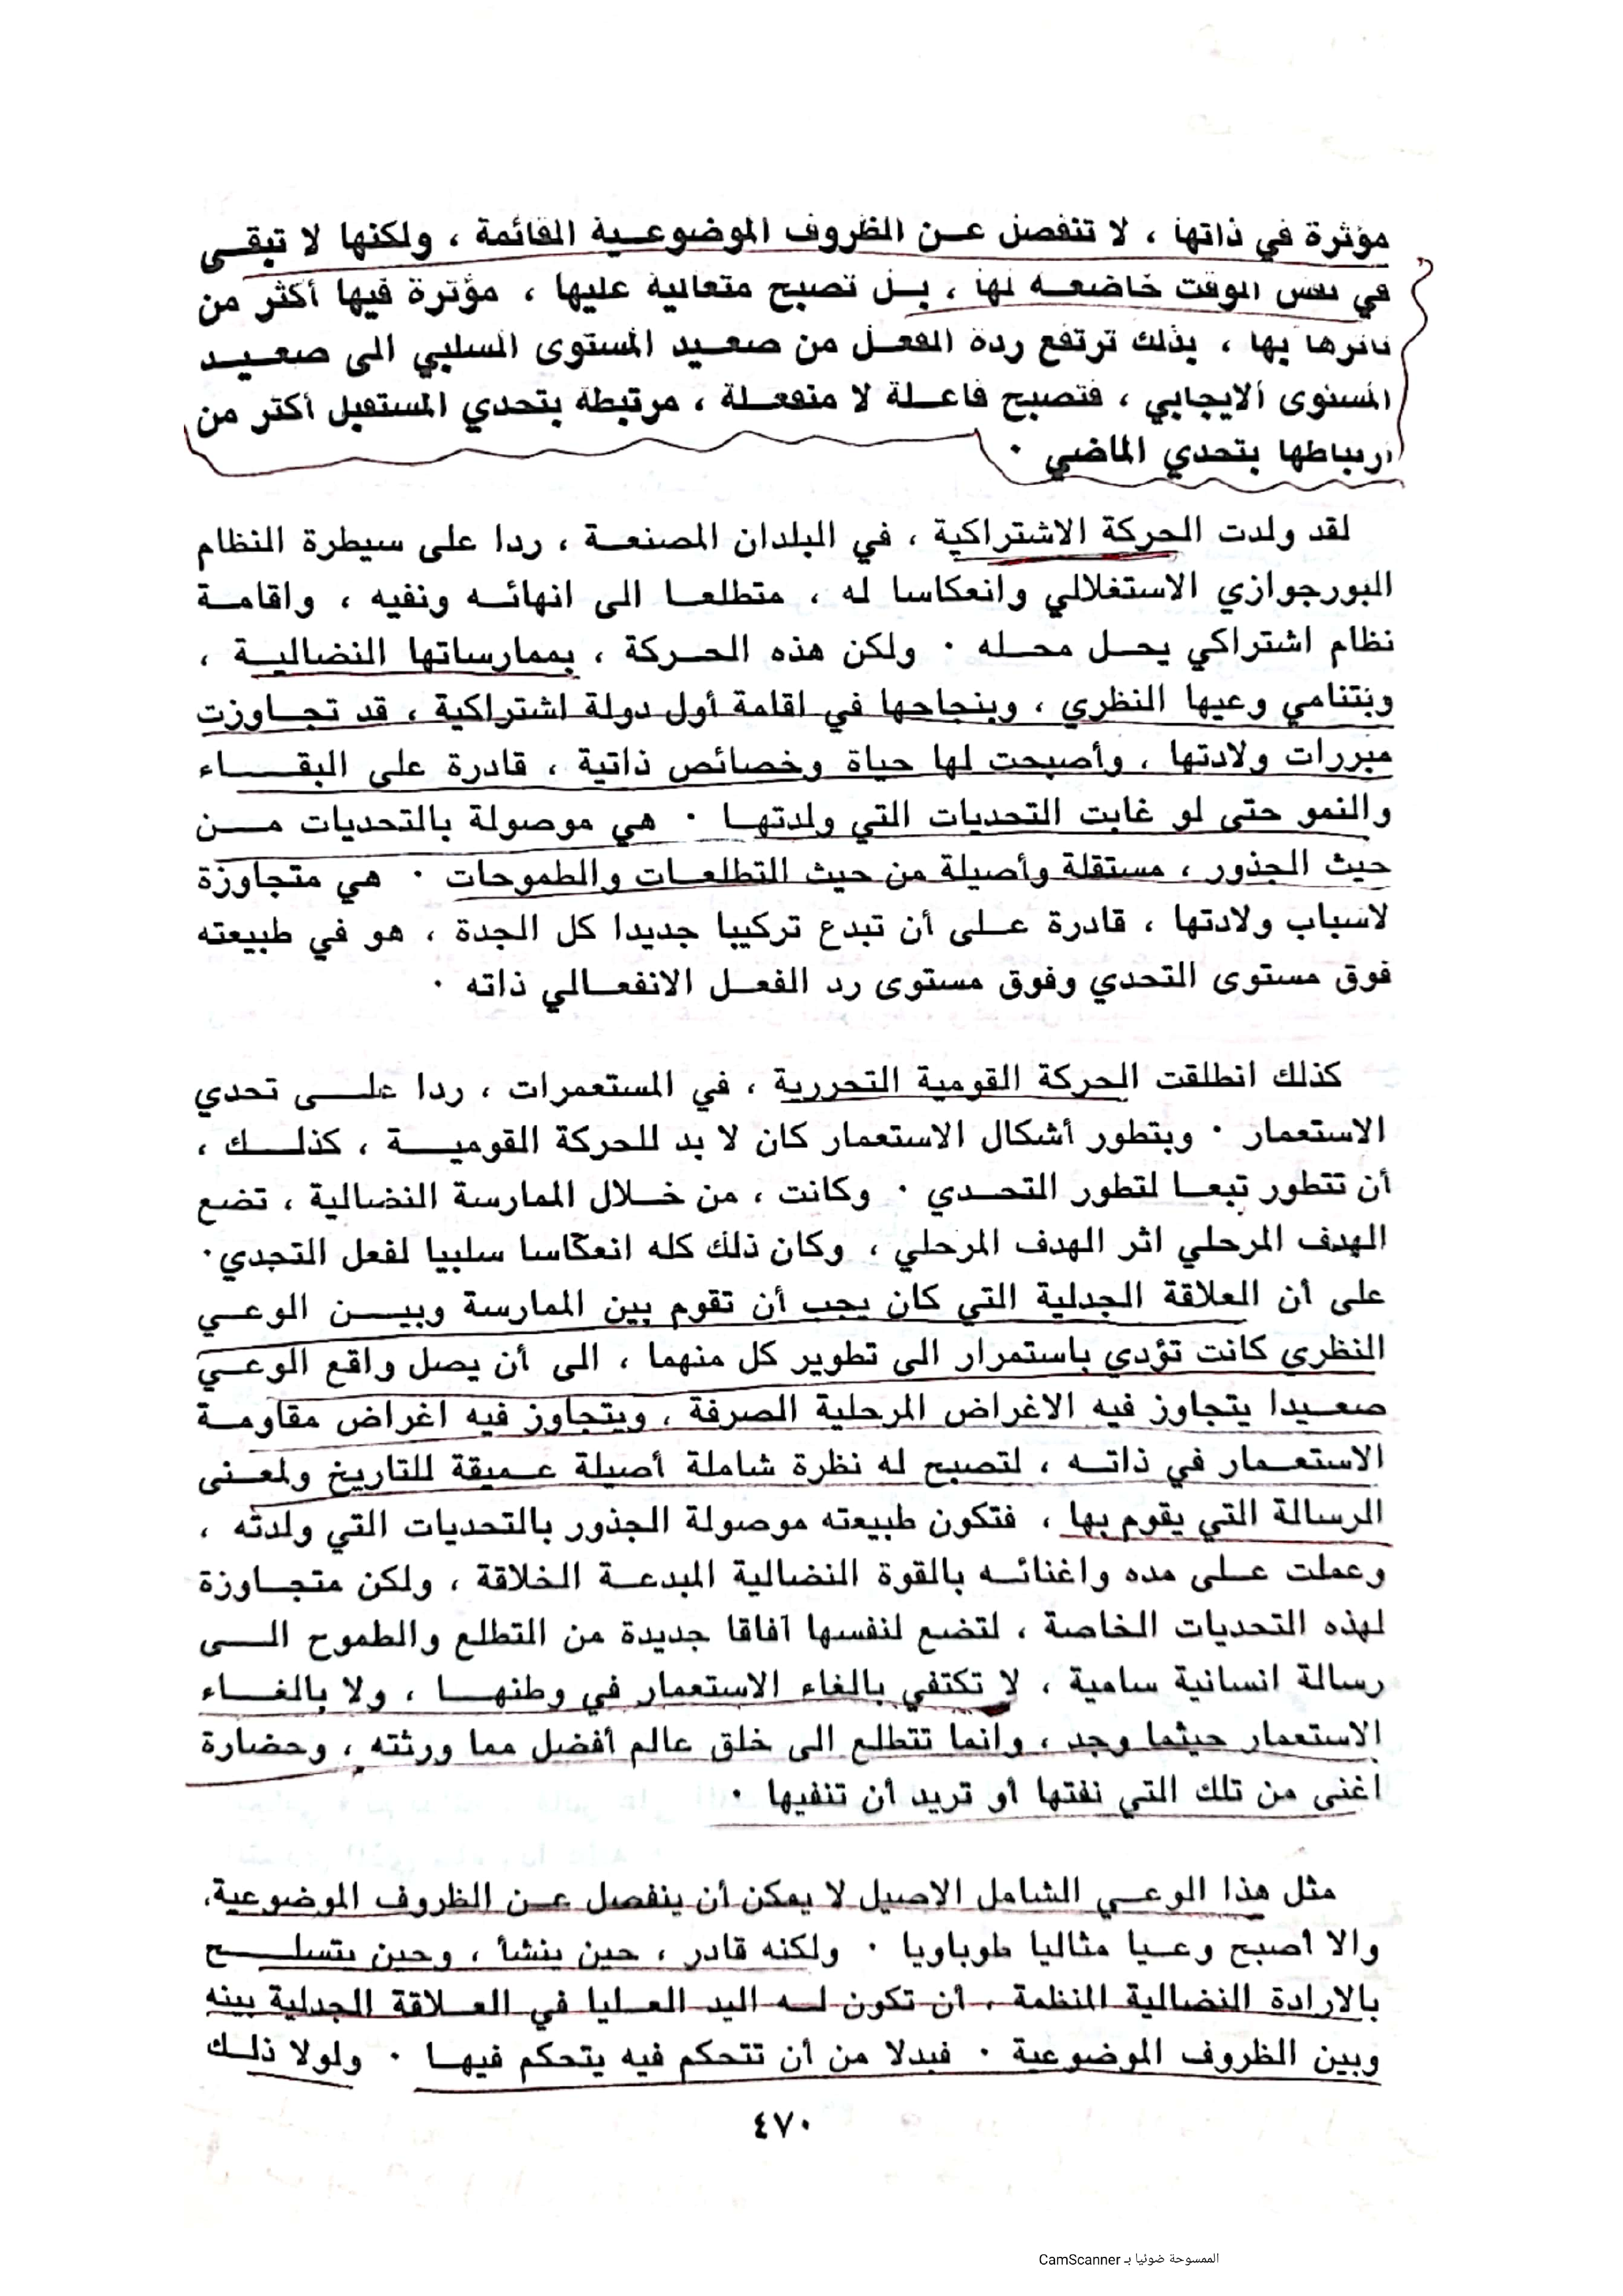 مؤثرة في ذاتها ، لا تنفصل عن الظروف الموضوعية القائمة ، ولكنها لا تبقى
في نفس الوقت خاضعة لها ، بل تصبح متعالية عليها ، مؤثرة فيها أكثر من
تأثرها بها ، بذلك ترتفع ردة الفعل من صعيد المستوى السلبي الى صعيد
المستوى الايجابي ، فتصبح فاعلة لا منفعلة ، مرتبطة بتحدي المستقبل أكثر من
ارتباطها بتحدي الماضي ٠
لقد ولدت الحركة الاشتراكية ، في البلدان المصنعة ، ردا على سيطرة النظام
البورجوازي الاستغلالي وانعكاسا له ، متطلعا الى انهائه ونفيه ، واقامة
نظام اشتراكي يحل محله ٠ ولكن هذه الحركة ، بممارساتها النضالية ،
وبتنامي وعيها النظري ، وبنجاحها في اقامة أول دولة اشتراكية ، قد تجاوزت
مبررات ولادتها ، وأصبحت لها حياة وخصائص ذاتية ، قادرة على البقاء
والنمو حتى لو غابت التحديات التي ولدتها ٠ هي موصولة بالتحديات من
حيث الجذور ، مستقلة وأصيلة من حيث التطلعات والطموحات ٠ هي متجاوزة
لاسباب ولادتها ، قادرة على أن تبدع تركيبا جديدا كل الجدة ، هو في طبيعته
فوق مستوى التحدي وفوق مستوى رد الفعل الانفعالي ذاته ٠
كذلك انطلقت الحركة القومية التحررية ، في المستعمرات ، ردا على تحدي
الاستعمار ٠ وبتطور أشكال الاستعمار كان لا بد للحركة القومية ، كذلك ،
أن تتطور تبعا لتطور التحدي ٠ وكانت ، من خلال الممارسة النضالية ، تضع
الهدف المرحلي اثر الهدف المرحلي ، وكان ذلك كله انعكاسا سلبيا لفعل التجدي٠
على أن العلاقة الجدلية التي كان يجب أن تقوم بين الممارسة وبين الوعي
النظري كانت تؤدي باستمرار الى تطوير كل منهما ، الى أن يصل واقع الوعي
صعيدا يتجاوز فيه الاغراض المرحلية الصرفة ، ويتجاوز فيه اغراض مقاومة
الاستعمار في ذاته ، لتصبح له نظرة شاملة أصيلة عميقة للتاريخ ولمعنى
الرسالة التي يقوم بها ، فتكون طبيعته موصولة الجذور بالتحديات التي ولدته ،
وعملت على مده واغنائه بالقوة النضالية المبدعة الخلاقة ، ولكن متجاوزة
لهذه التحديات الخاصة ، لتضع لنفسها آفاقا جديدة من التطلع والطموح الى
رسالة انسانية سامية ، لا تكتفي بالغاء الاستعمار في وطنها ، ولا بالغاء
الاستعمار حيثما وجد ، وانما تتطلع الى خلق عالم أفضل مما ورثته ، وحضارة
اغنى من تلك التي نفتها أو تريد أن تنفيها ٠
مثل هذا الوعي الشامل الاصيل لا يمكن أن ينفصل عن الظروف الموضوعية،
والا أصبح وعيا مثاليا طوباويا ٠ ولكنه قادر ، حين ينشأ ، وحين يتسلح
بالارادة النضالية المنظمة ، أن تكون له اليد العليا في العلاقة الجدلية بينه
وبين الظروف الموضوعية ٠ فبدلا من أن تتحكم فيه يتحكم فيها ٠ ولولا ذلك
٤٧٠
الممسوحة ضوئيا بـ CamScanner